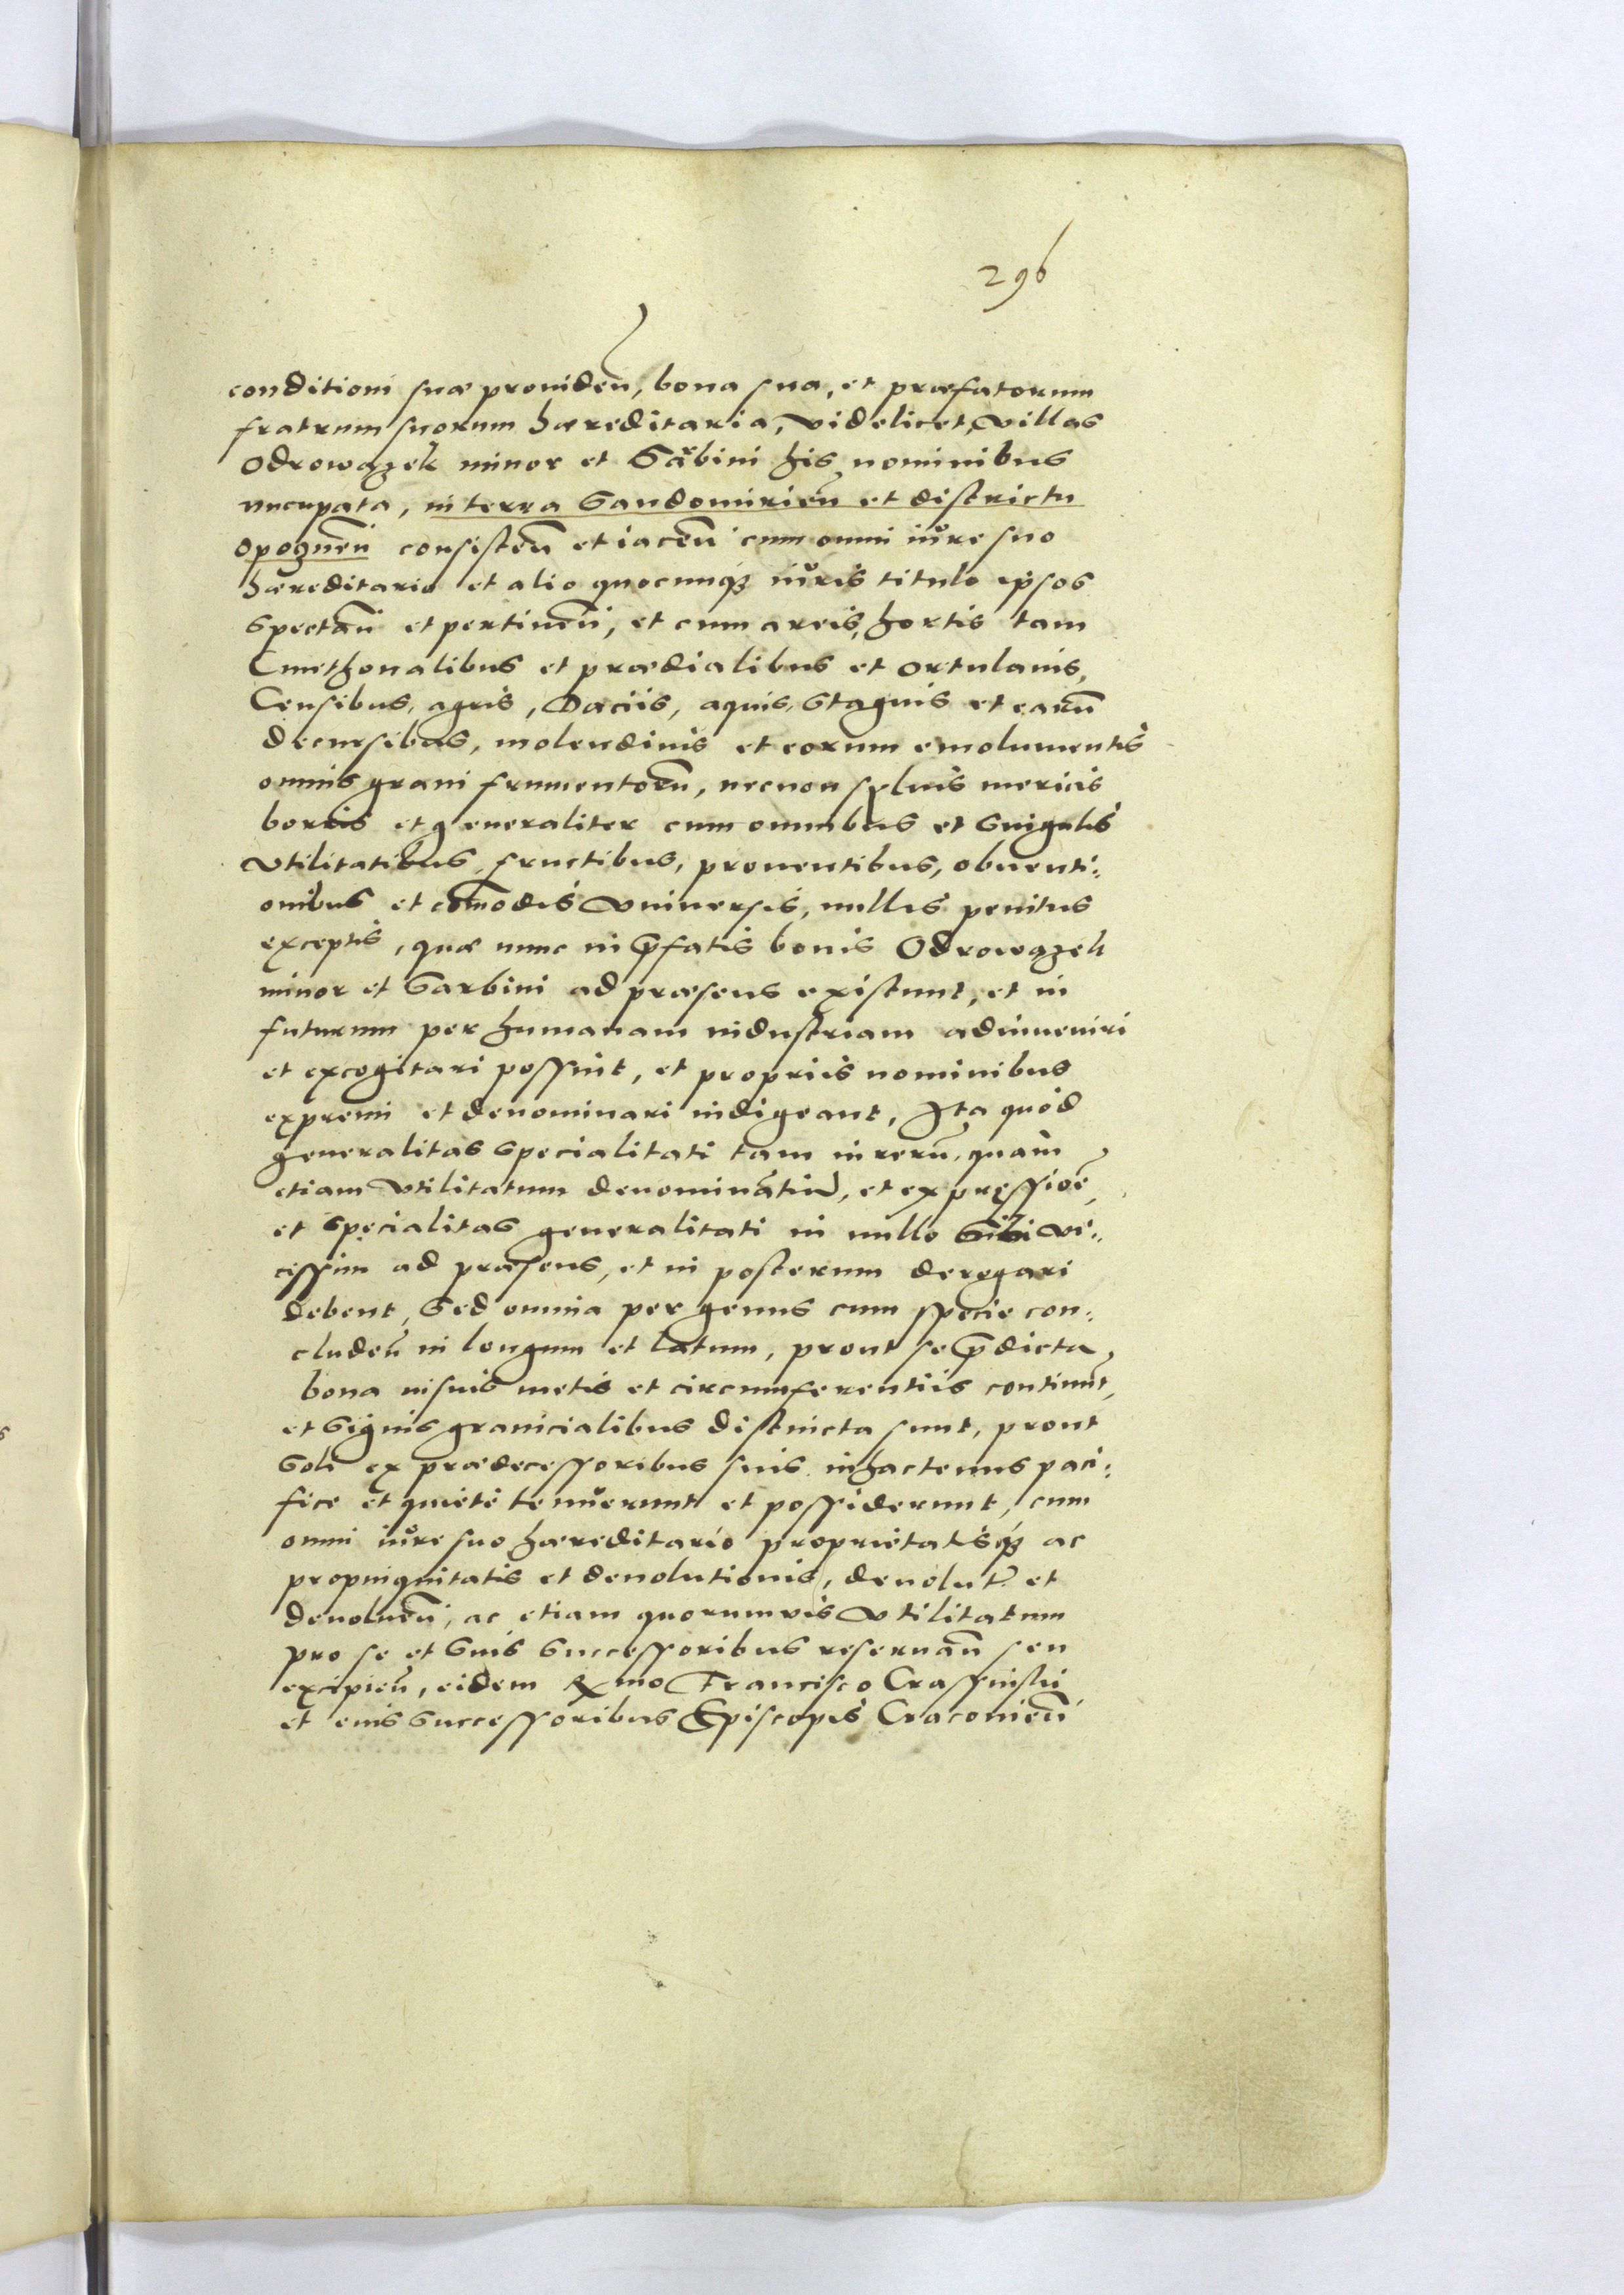 296
conditioni suæ prouideñ, bona sua, et præfatorum
fratrum suorum hæreditaria, videlicet, villas
Odrowązek minor et Garbini his nominibus
nncupata, in terra Sandomirieñ et districtu
opoczneñ consisteñ et iaceñ cum omni iure suo
hæreditario et alio quocunqз iuris titulo ipsos
spectañ et pertineñ, et cum areis, hortis tam
Cmethonalibus et prædialibus et ortulanis,
Censibus, agris, Daciis, aquis, stagnis et earũ
decursibus, molendinis et eorum emolumentis
omnis grani frumentorũ, necnon syluis mericis
borris et generaliter cum omnibus et singulis
vtilitatibus, fructibus, prouentibus, obuenti:
onibus et com̃odis vniuersis, nullis penitus
exceptis, quæ nunc in p̃fatis bonis Odrowązek
minor et Garbini ad præsens existunt, et in
futurum per humanam industriam adinueniri
et excogitari possint, et propriis nominibus
expremi et denominari indigeant, Ita quòd
generalitas specialitati tam in rerũ, quàm
etiam vtilitatum denominãtiõe, et expressiõe
et specialitas generalitati in nullo sibi vi:
cissim ad præsens, et in posterum derogari
debent, sed omnia per genus cum specie con:
cludeñ in longum et latum, prout se p̃dicta
bona in suis metis et circumferentiis continẽt,
et signis granicialibus distincta sunt, prout
soli ex prædecessoribus suis inhactenus paci:
fice et quietè tenuerunt et possiderunt, cum
omni iure suo hæreditario proprietatisqз ac
propinquitatis et deuolutionis, deuolut? et
deuolueñ, ac etiam quorumvis vtilitatum
pro se et suis successoribus reseruañ seu
excipieñ, eidem Rmo Francisco Crassinski
et eius successoribus Episcopis Cracouieñ